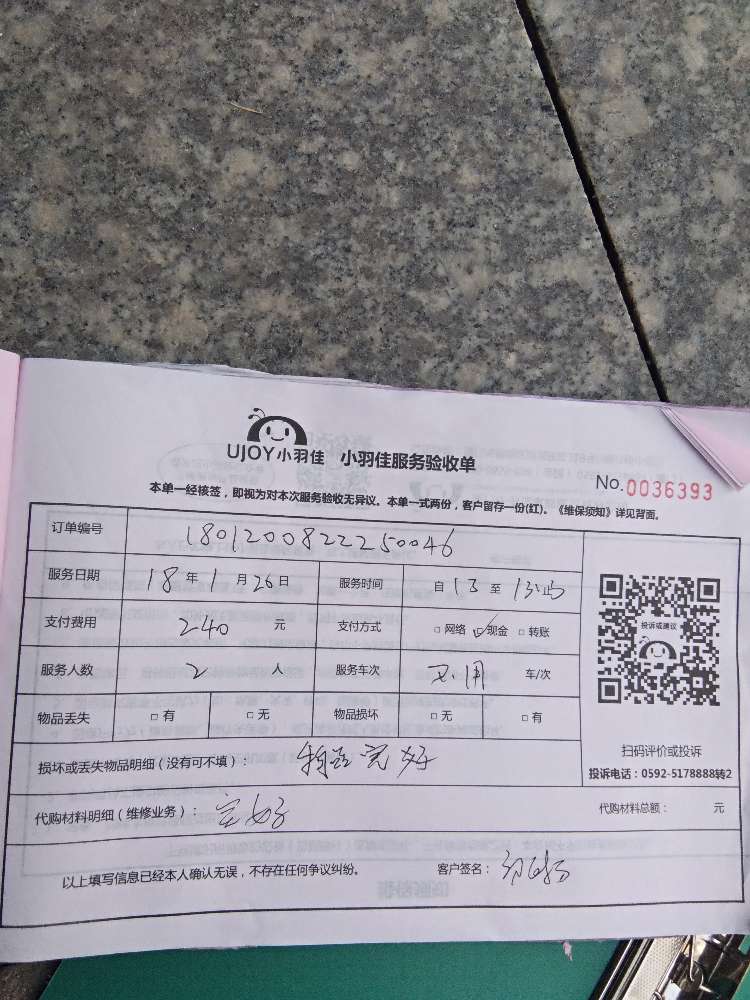 UJOY小羽佳 小羽佳服务验收单
No.0036393
本单一经核签，即视为对本次服务验收无异议。本单一式两份，客户留存一份(红)。《维保须知》详见背面。
订单编号 1801200822250046
服务日期 18 年 1 月 26 日 服务时间 自 13 至
支付费用 240 元 支付方式 □ 网络 ☑ 现金 □ 转账
服务人数 2 人 服务车次 车/次
物品丢失 □ 有 □ 无 物品损坏 □ 无 □ 有
损坏或丢失物品明细（没有可不填）： 完好
代购材料明细（维修业务）： 完好 代购材料总额： 元
以上填写信息已经本人确认无误，不存在任何争议纠纷。 客户签名：
投诉或建议
扫码评价或投诉
投诉电话：0592-5178888转2